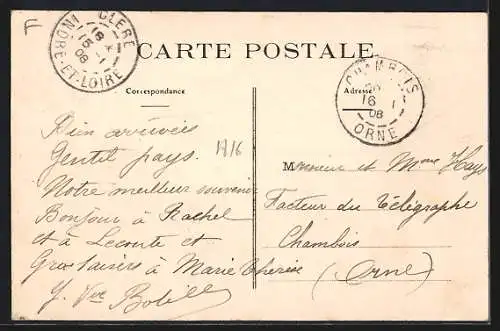 F
CLERÉ
INDRE-ET-LOIRE
08
CARTE POSTALE
Correspondance
Adresse
CHAMBOIS
6
08
ORNE
Bien arrivées
Gentil pays.
1716
Notre meilleur souvenir
Bonjour à Rachel
et à Lecoute et
Gros baisers à Marie Thérèse
Monsieur et Mme Hays
Facteur du Télégraphe
Chambois
(Orne)